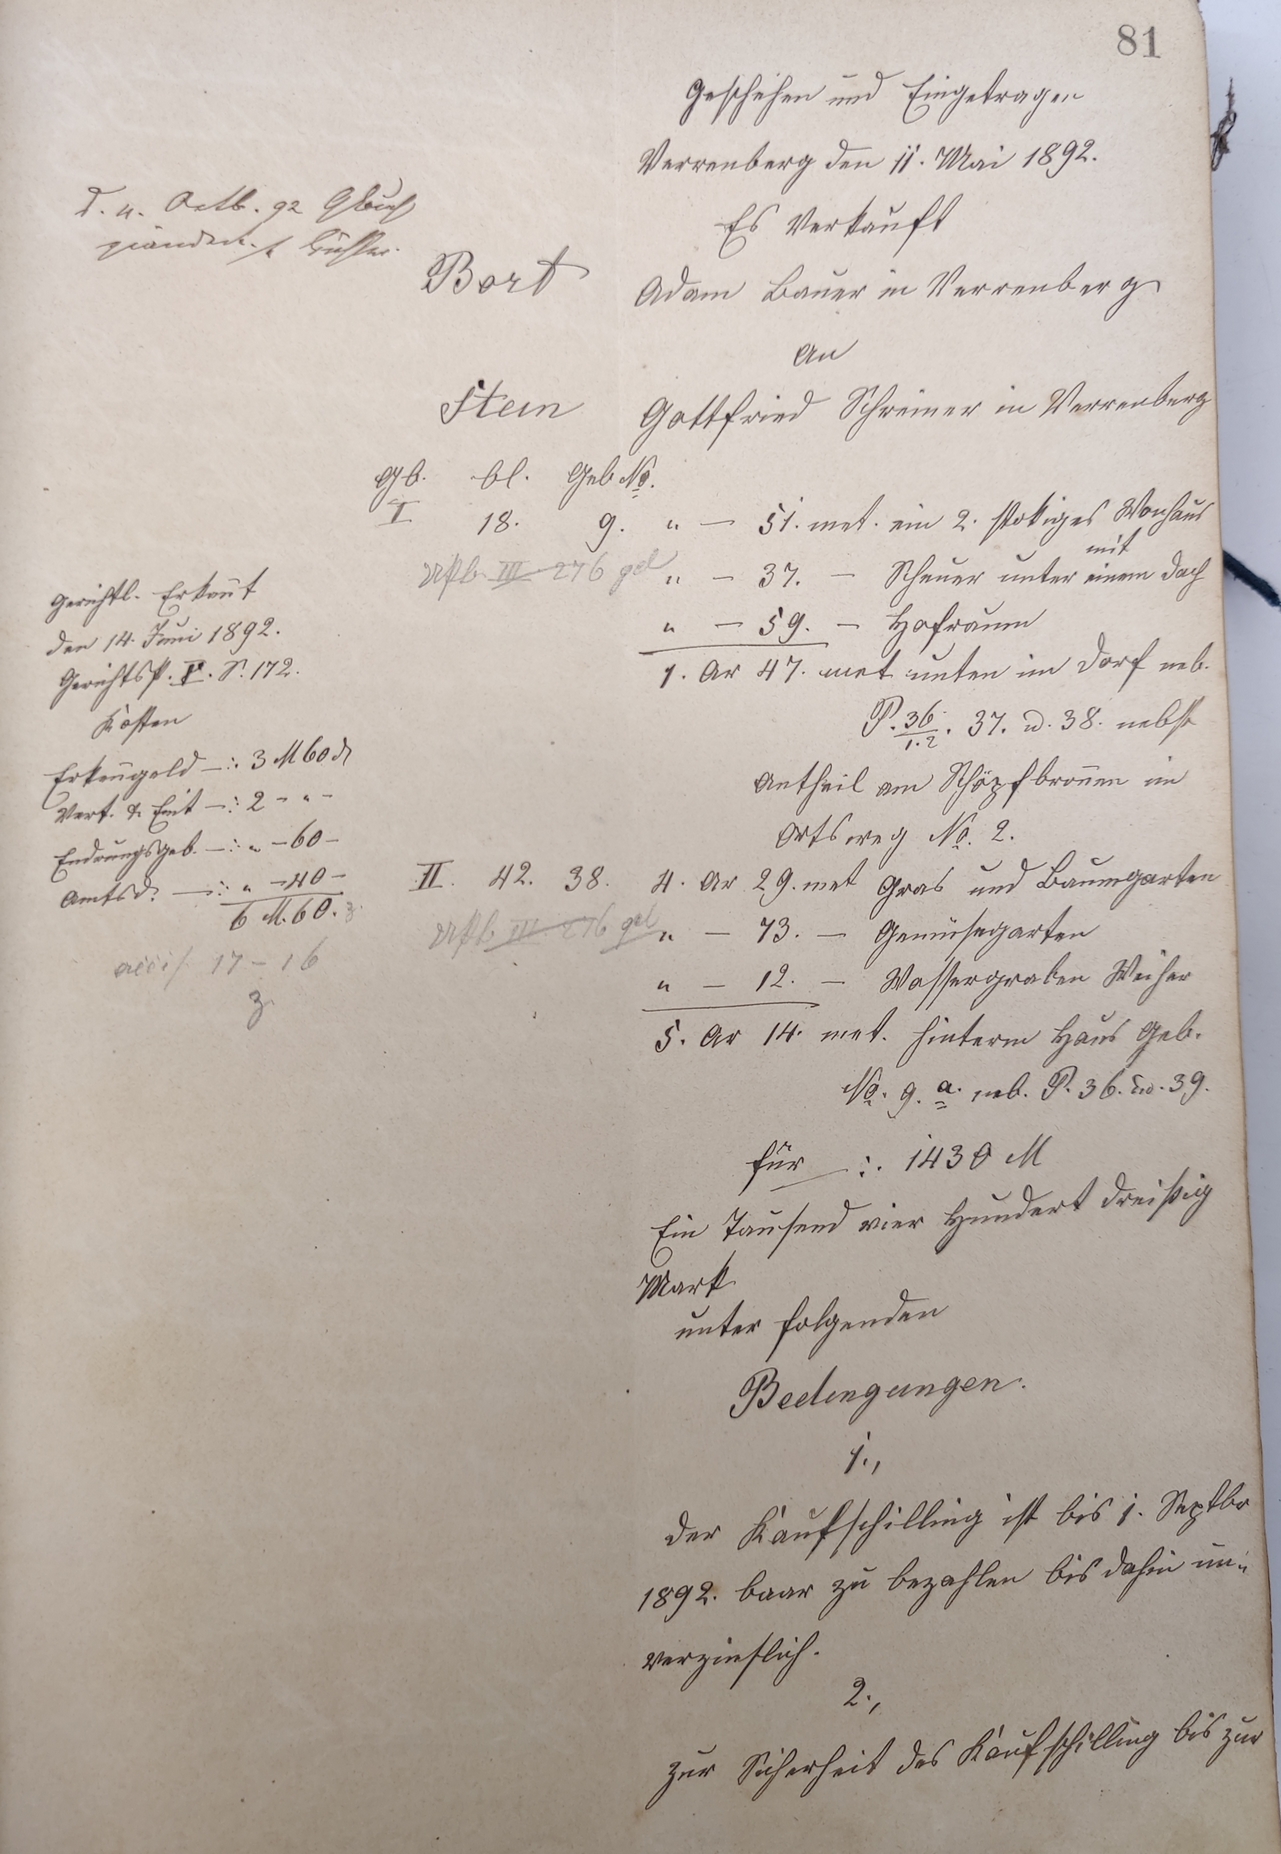 81
Geschehen und Eingetragen
Verrenberg den 11. Mai 1892.
Es Verkauft
Bort
Adam Bauer in Verrenberg
An
Stein
Gottfried Schreiner in Verrenberg
Gb. bl. Geb No.
I 18. 9. " — 51. met. ein 2. stokiges Wonhaus
mit
III 276 gel " — 37. — Scheuer unter einem Dach
" — 59. — Hofraum
1. Ar 47. met unten im Dorf neb.
P. 36/1.2. 37. u. 38. nebst
Antheil am Schöpfbronnen im
Ortsweg No. 2.
II. 42. 38. 4. Ar 29. met Gras und Baumgarten
III 276 gel " — 73. — Gemüsegarten
" — 12. — Wassergraben Weiher
5. Ar 14. met. hinterm Haus Geb.
No. 9. a. neb. P. 36. u. 39.
für —:. 1430 M
Ein Tausend vier Hundert dreißig
Mark
unter folgenden
Bedingungen.
1.,
Der Kaufschilling ist bis 1. Septbr
1892. baar zu bezahlen bis dahin un-
verzinslich.
2.,
Zur Sicherheit des Kaufschilling bis zur
Gerichtl. Erkant
den 14. Juni 1892.
Gerichtsp. V. S. 172.
Kosten
Erkengeld —:. 3 M 60 d
Verf. & Eint —:. 2 - " -
—:. " — 60 —
Amtsd. —:. " — 40 —
6 M. 60.
17 — 16